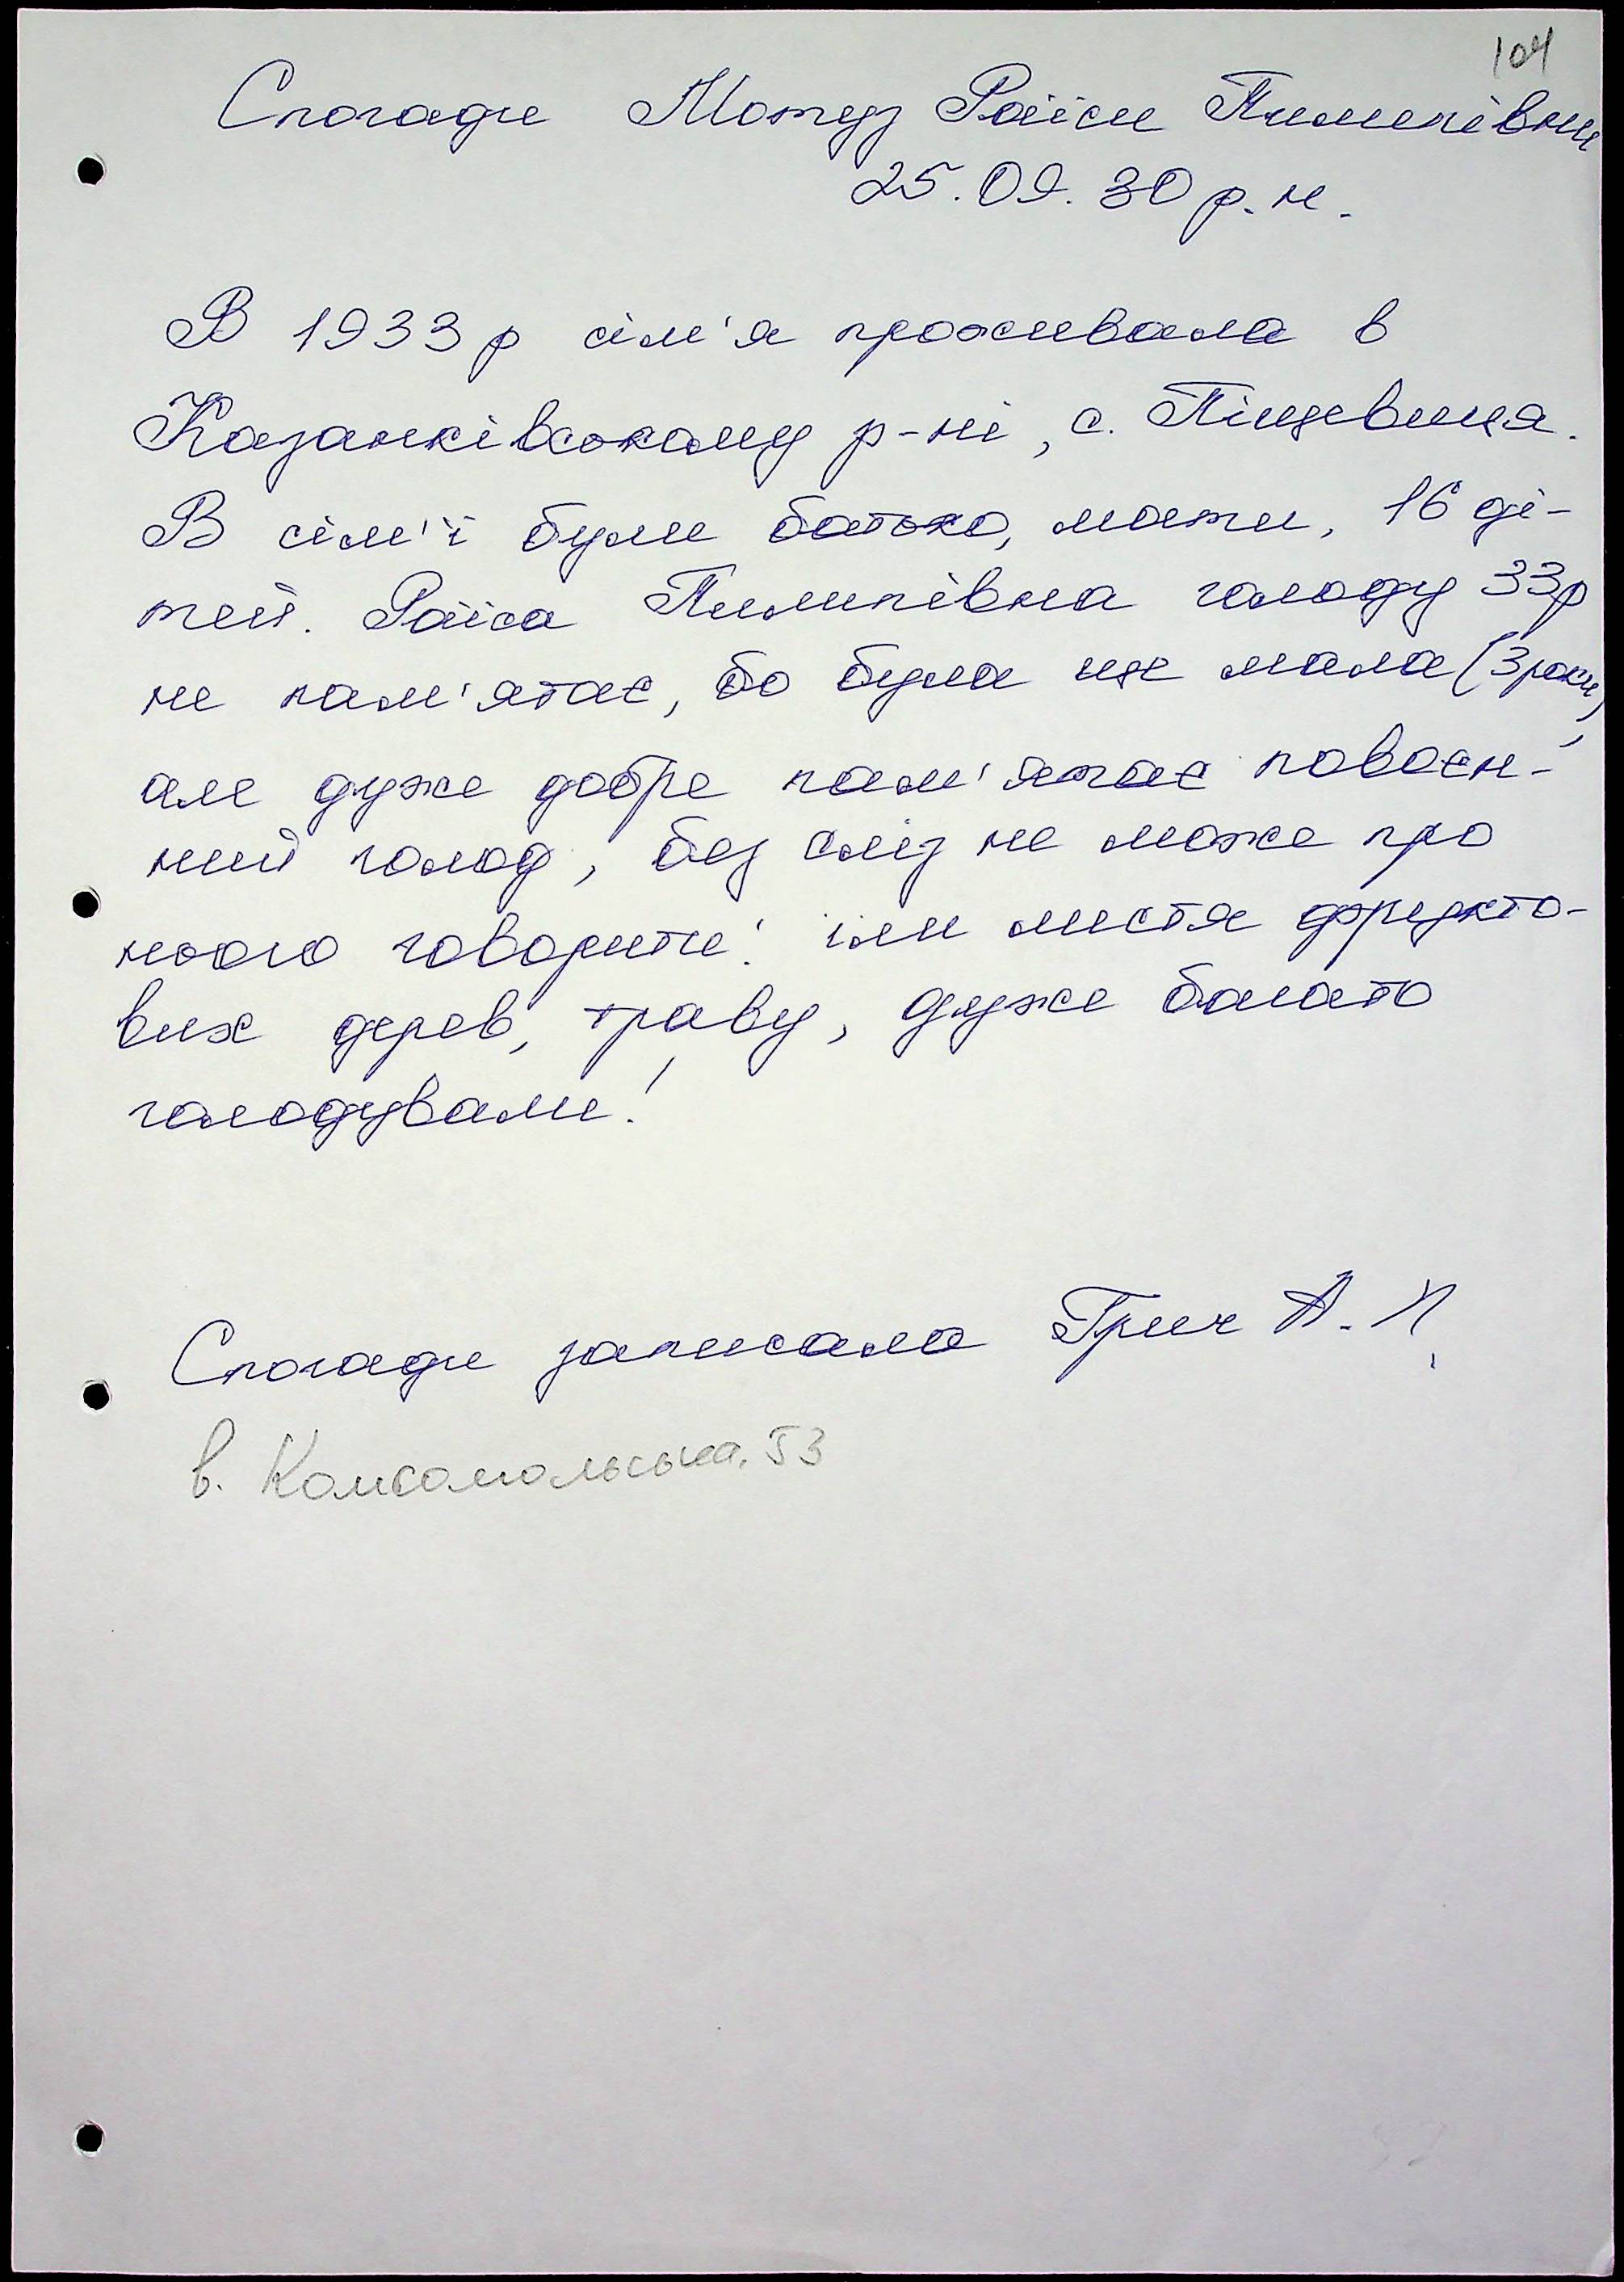 104
Спогади Мотуз Раїси Пилипівни
25.09.30 р.н.
В 1933 р сім'я проживала в
Казанківському р-ні, с. Піщевиця.
В сім'ї були батько, мати, 16 ді-
тей. Раїса Пилипівна голоду 33р
не пам'ятає, бо була ще мала (3 роки)
але дуже добре пам'ятає повоєн-
ний голод, без сліз не може про
нього говорити! їли листя фрукто-
вих дерев, траву, дуже багато
голодували!
Спогади записала Грич А.П.
в. Комсомольська, 53